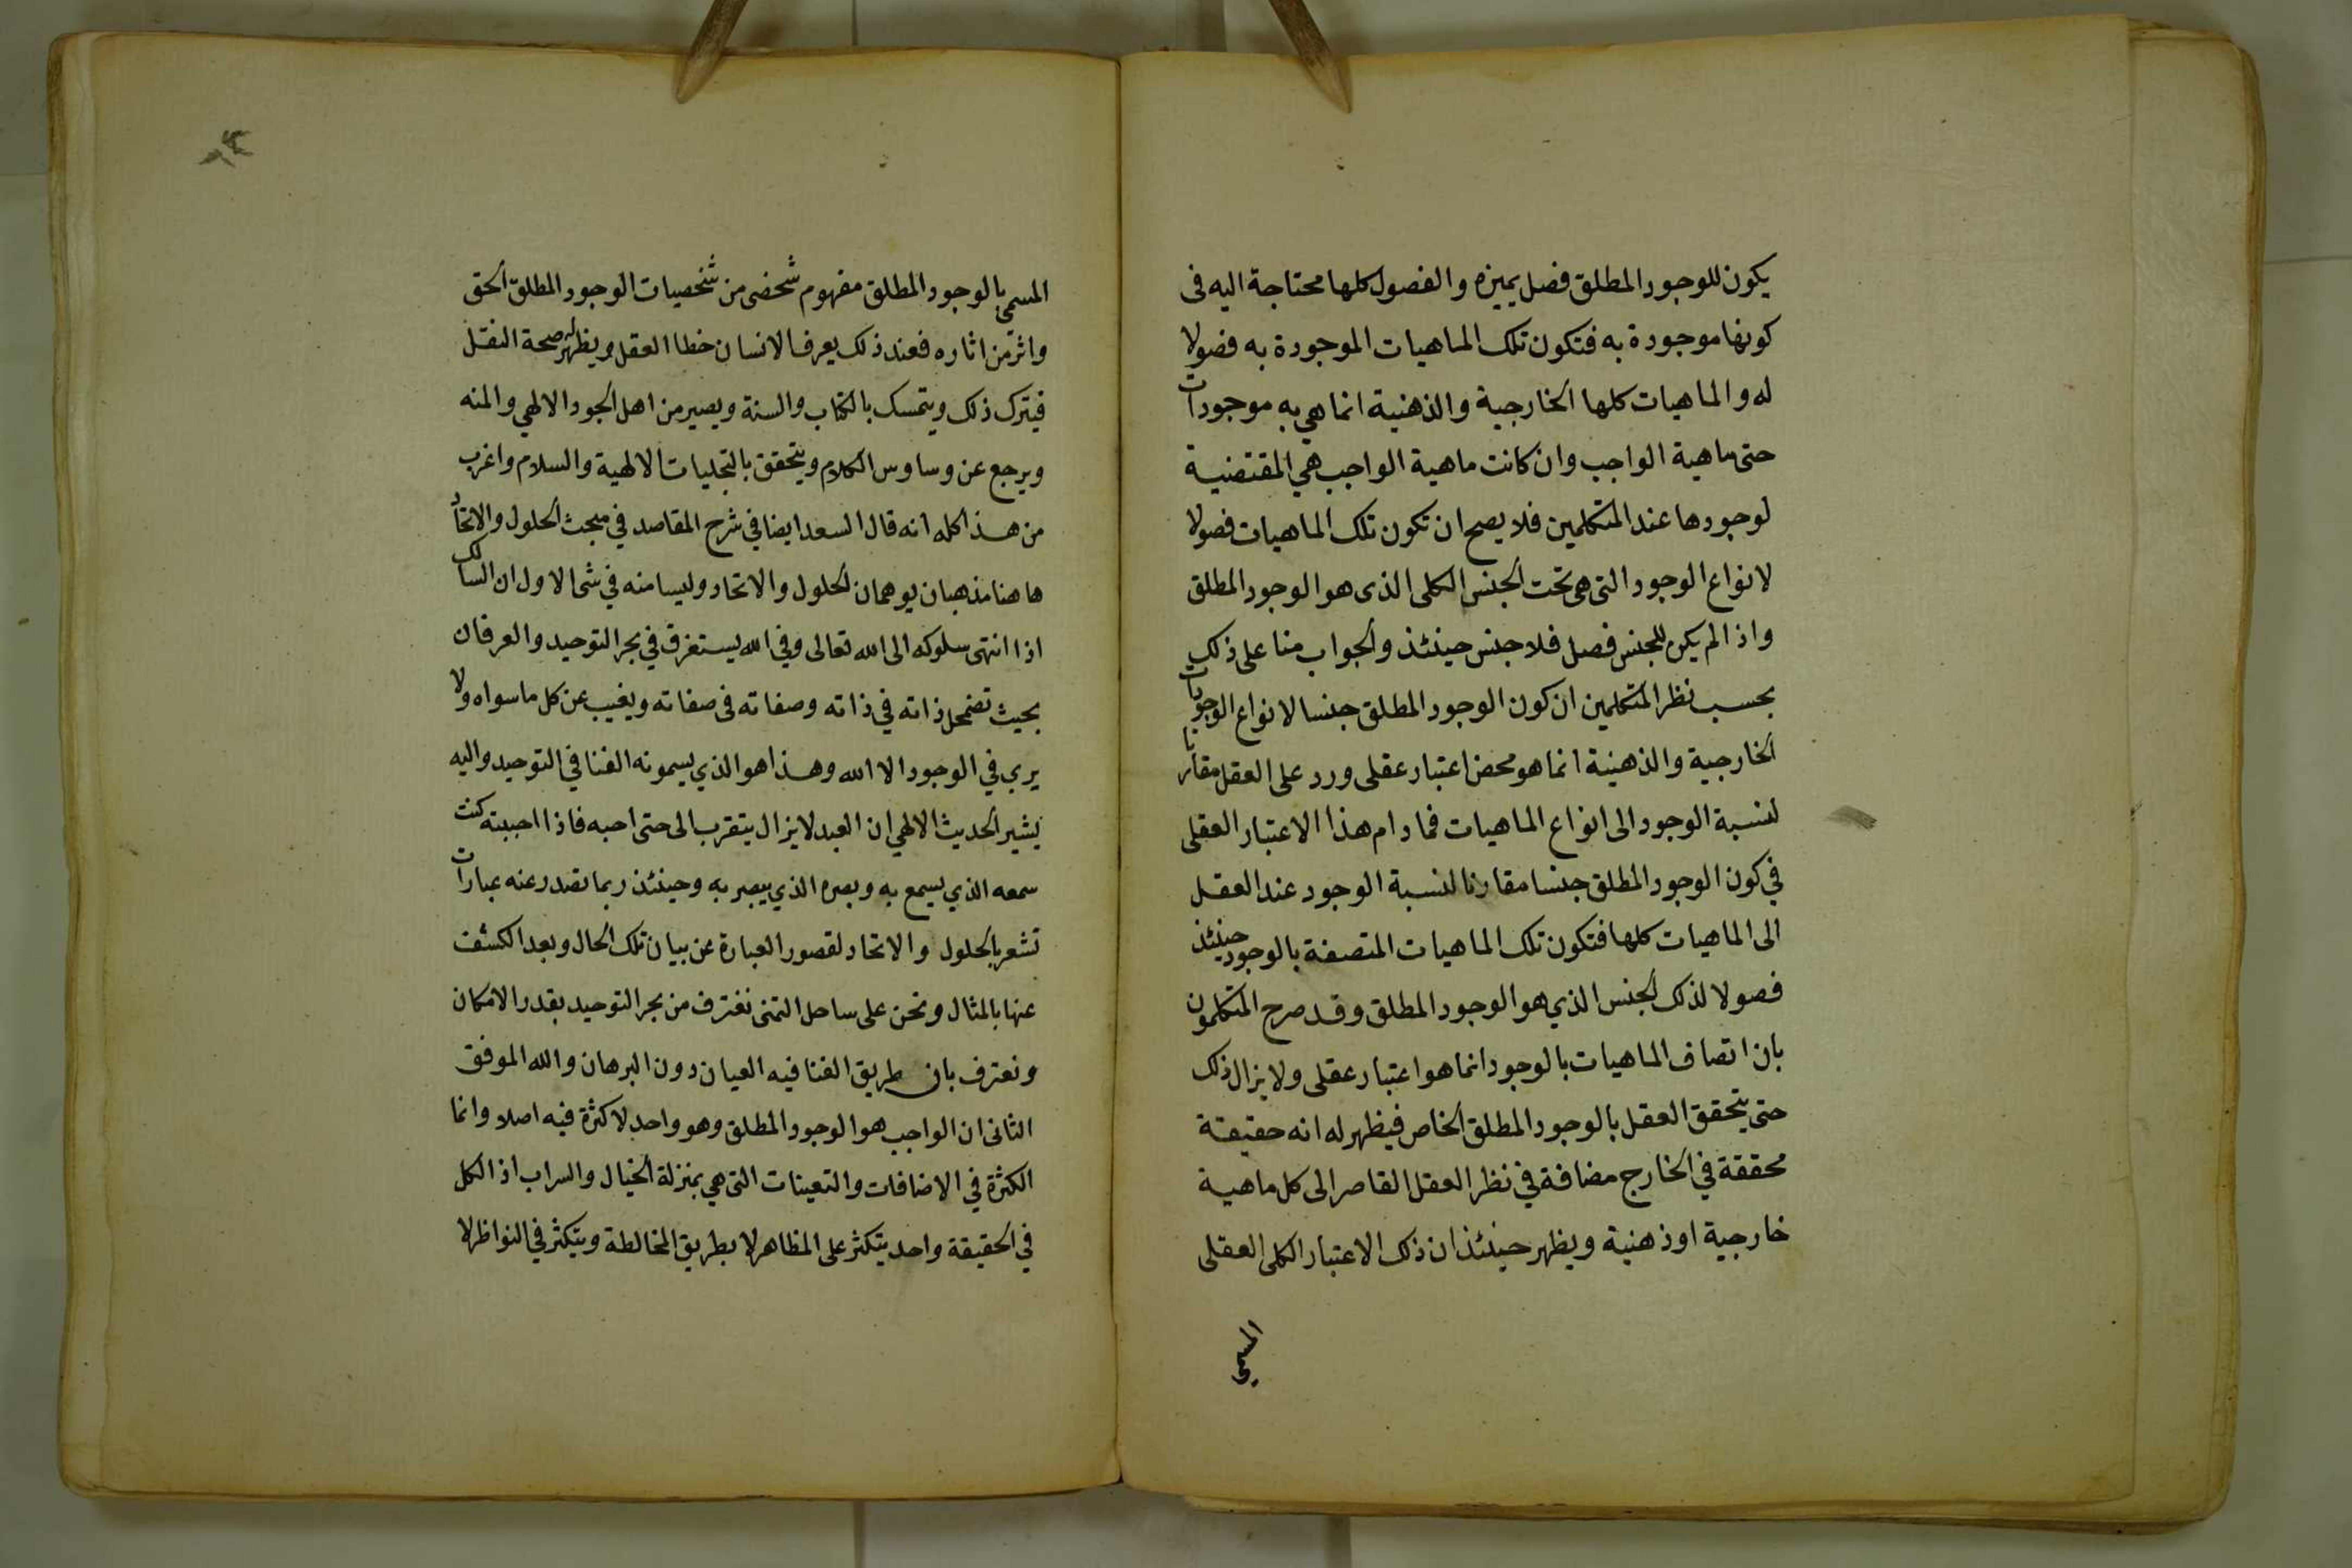 يكون للوجود المطلق فصل يميزه والفصول كلها محتاجة اليه فى
كونها موجودة به فتكون تلك الماهيات الموجودة به فصولا
له والماهيات كلها الخارجية والذهنية انما هي به موجودات
حتى ماهية الواجب وان كانت ماهية الواجب هي المقتضية
لوجودها عند المتكلمين فلا يصح ان تكون تلك الماهيات فصولا
لانواع الوجود التى هى تحت الجنس الكلى الذى هو الوجود المطلق
واذا لم يكن للجنس فصل فلا جنس حينئذ والجواب منا على ذلك
بحسب نظر المتكلمين ان كون الوجود المطلق جنسا لانواع الوجودات
الخارجية والذهنية انما هو محض اعتبار عقلى ورد على العقل مقارنا
لنسبة الوجود الى انواع الماهيات فما دام هذا الاعتبار العقلى
في كون الوجود المطلق جنسا مقارنا لنسبة الوجود عند العقل
الى الماهيات كلها فتكون تلك الماهيات المتصفة بالوجود حينئذ
فصولا لذلك الجنس الذي هو الوجود المطلق وقد صرح المتكلمون
بان اتصاف الماهيات بالوجود انما هو اعتبار عقلى ولا يزال ذلك
حتى يتحقق العقل بالوجود المطلق الخاص فيظهر له انه حقيقة
محققة في الخارج مضافة في نظر العقل القاصر الى كل ماهية
خارجية او ذهنية ويظهر حينئذ ان ذلك الاعتبار الكلى العقلى
المسمى
المسمى بالوجود المطلق مفهوم شخصى من شخصيات الوجود المطلق الحق
واثر من اثاره فعند ذلك يعرف الانسان خطا العقل ويظهر له صحة النقل
فيترك ذلك ويتمسك بالكتاب والسنة ويصير من اهل الجود الالهي والمنه
ويرجع عن وساوس الكلام ويتحقق بالتجليات الالهية والسلام واغرب
من هذا كله انه قال السعد ايضا في شرح المقاصد في مبحث الحلول والاتحاد
هاهنا مذهبان يوهمان الحلول والاتحاد وليسا منه في شى الاول ان السالك
اذا انتهى سلوكه الى الله تعالى وفي الله يستغرق في بحر التوحيد والعرفان
بحيث تضمحل ذاته في ذاته وصفاته فى صفاته ويغيب عن كل ما سواه ولا
يري في الوجود الا الله وهذا هو الذي يسمونه الفنا في التوحيد واليه
يشير الحديث الالهي ان العبد لا يزال يتقرب الى حتى احبه فاذا احببته كنت
سمعه الذي يسمع به وبصره الذي يبصر به وحينئذ ربما تصدر عنه عبارات
تشعر بالحلول والاتحاد لقصور العبارة عن بيان تلك الحال وبعد الكشف
عنها بالمثال ونحن على ساحل التمنى نغترف من بحر التوحيد بقدر الامكان
ونعترف بان طريق الفنا فيه العيان دون البرهان والله الموفق
الثانى ان الواجب هو الوجود المطلق وهو واحد لا كثرة فيه اصلا وانما
الكثرة في الاضافات والتعينات التى هي بمنزلة الخيال والسراب اذ الكل
في الحقيقة واحد يتكثر على المظاهر لا بطريق المخالطة ويتكثر في النواظر لا